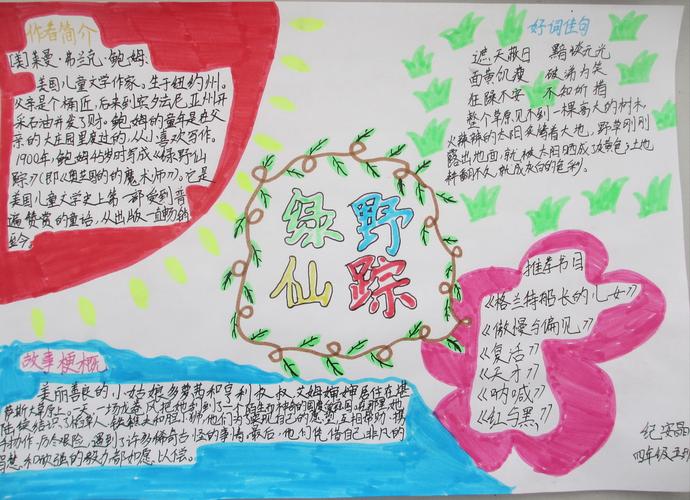 作者简介
[美]莱曼·弗兰克·鲍姆.
美国儿童文学作家,生于纽约州。
父亲是个桶匠,后来到宾夕法尼亚州开
采石油并发了财。鲍姆的童年是在父
亲的大庄园里度过的,从小喜欢写作。
1900年,鲍姆44岁时写成《绿野仙
踪》(即《奥兹国的魔术师》)。它是
美国儿童文学史上第一部受到普
遍赞赏的童话,从出版一直畅销
至今。
好词佳句
遮天蔽日 黯淡无光
面带饥瘦 破涕为笑
狂躁不安 不知所措
整个草原见不到一棵高大的树木,
火辣辣的太阳炙烤着大地,野草刚刚
露出地面,就被太阳晒成了
绿野
仙踪
推荐书目
《格兰特船长的儿女》
《傲慢与偏见》
《复活》
《天才》
《呐喊》
《红与黑》
故事梗概
美丽善良的小姑娘多萝茜和亨利叔叔艾姆婶婶居住在堪
萨斯大草原上。一天,一场龙卷风把她刮到了一个陌生而神奇的国度
陆续结识了稻草人、铁樵夫和胆小狮,他们为了实现自己的愿望,互相帮助,携
手协作,历尽艰险,遇到了许多稀奇古怪的事情,最后,他们凭借自己非凡的
智慧和顽强的毅力都如愿以偿。
四年级五班